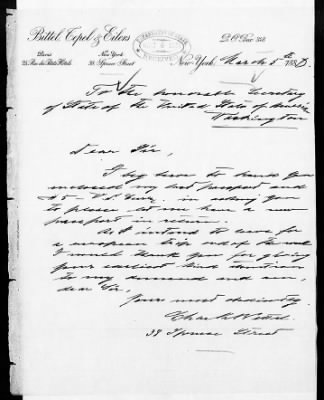 Bittel, Tepel & Eilers
P.O. Box
Paris
New York
25 Rue des Petits Hôtels
Spruce Street
RECEIVED
New-York, March 5th 188
To the honorable Secretary
of State of the United State of America
Washington
Dear Sir,
I beg leave to hand you
enclosed my last passport and
in asking you
to please let me have a new
passport in return.
As I intend to leave for
a european trip end of
I would thank you for giving
your earliest kind attention
to my demand and am,
dear Sir,
yours most obediently
Spruce Street